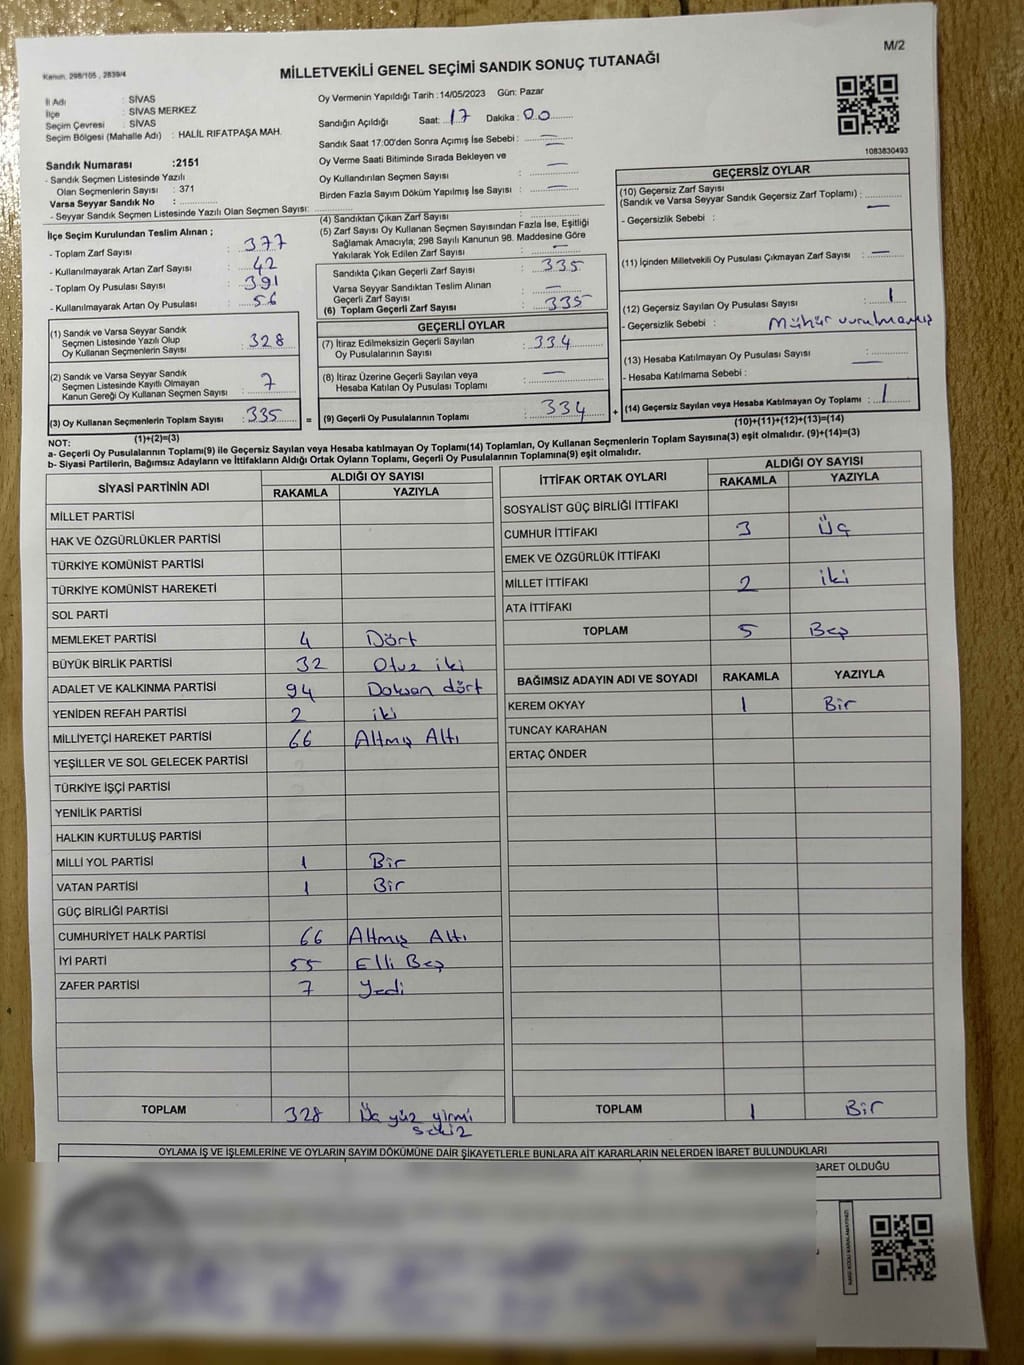 M/2
Kanun, 298/105 , 2839/4
MİLLETVEKİLİ GENEL SEÇİMİ SANDIK SONUÇ TUTANAĞI
İl Adı : SİVAS
İlçe : SİVAS MERKEZ
Seçim Çevresi : SİVAS
Seçim Bölgesi (Mahalle Adı) : HALİL RIFATPAŞA MAH.
Sandık Numarası :2151
- Sandık Seçmen Listesinde Yazılı
Olan Seçmenlerin Sayısı : 371
Varsa Seyyar Sandık No :
- Seyyar Sandık Seçmen Listesinde Yazılı Olan Seçmen Sayısı:
Oy Vermenin Yapıldığı Tarih :14/05/2023 Gün: Pazar
Sandığın Açıldığı Saat: 17 Dakika : 00
Sandık Saat 17:00'den Sonra Açımış İse Sebebi : —
Oy Verme Saati Bitiminde Sırada Bekleyen ve
Oy Kullandırılan Seçmen Sayısı : —
Birden Fazla Sayım Döküm Yapılmış İse Sayısı : —
1083830493
İlçe Seçim Kurulundan Teslim Alınan ;
- Toplam Zarf Sayısı : 377
- Kullanılmayarak Artan Zarf Sayısı : 42
- Toplam Oy Pusulası Sayısı : 391
- Kullanılmayarak Artan Oy Pusulası : 56
(1) Sandık ve Varsa Seyyar Sandık
Seçmen Listesinde Yazılı Olup
Oy Kullanan Seçmenlerin Sayısı : 328
(2) Sandık ve Varsa Seyyar Sandık
Seçmen Listesinde Kayıtlı Olmayan
Kanun Gereği Oy Kullanan Seçmen Sayısı : 7
(3) Oy Kullanan Seçmenlerin Toplam Sayısı : 335 =
(1)+(2)=(3)
(4) Sandıktan Çıkan Zarf Sayısı :
(5) Zarf Sayısı Oy Kullanan Seçmen Sayısından Fazla İse, Eşitliği
Sağlamak Amacıyla; 298 Sayılı Kanunun 98. Maddesine Göre
Yakılarak Yok Edilen Zarf Sayısı : —
Sandıkta Çıkan Geçerli Zarf Sayısı : 335
Varsa Seyyar Sandıktan Teslim Alınan
Geçerli Zarf Sayısı : —
(6) Toplam Geçerli Zarf Sayısı : 335
GEÇERLİ OYLAR
(7) İtiraz Edilmeksizin Geçerli Sayılan
Oy Pusulalarının Sayısı : 334
(8) İtiraz Üzerine Geçerli Sayılan veya
Hesaba Katılan Oy Pusulası Toplamı : —
(9) Geçerli Oy Pusulalarının Toplamı : 334 +
GEÇERSİZ OYLAR
(10) Geçersiz Zarf Sayısı
(Sandık ve Varsa Seyyar Sandık Geçersiz Zarf Toplamı) : —
- Geçersizlik Sebebi :
(11) İçinden Milletvekili Oy Pusulası Çıkmayan Zarf Sayısı : —
(12) Geçersiz Sayılan Oy Pusulası Sayısı : 1
- Geçersizlik Sebebi : Mühür vurulmamış
(13) Hesaba Katılmayan Oy Pusulası Sayısı : —
- Hesaba Katılmama Sebebi :
(14) Geçersiz Sayılan veya Hesaba Katılmayan Oy Toplamı : 1
(10)+(11)+(12)+(13)=(14)
NOT:
a- Geçerli Oy Pusulalarının Toplamı(9) ile Geçersiz Sayılan veya Hesaba katılmayan Oy Toplamı(14) Toplamları, Oy Kullanan Seçmenlerin Toplam Sayısına(3) eşit olmalıdır. (9)+(14)=(3)
b- Siyasi Partilerin, Bağımsız Adayların ve İttifakların Aldığı Ortak Oyların Toplamı, Geçerli Oy Pusulalarının Toplamına(9) eşit olmalıdır.
SİYASİ PARTİNİN ADI ALDIĞI OY SAYISI
RAKAMLA YAZIYLA
MİLLET PARTİSİ
HAK VE ÖZGÜRLÜKLER PARTİSİ
TÜRKİYE KOMÜNİST PARTİSİ
TÜRKİYE KOMÜNİST HAREKETİ
SOL PARTİ
MEMLEKET PARTİSİ 4 Dört
BÜYÜK BİRLİK PARTİSİ 32 Otuz iki
ADALET VE KALKINMA PARTİSİ 94 Doksan dört
YENİDEN REFAH PARTİSİ 2 iki
MİLLİYETÇİ HAREKET PARTİSİ 66 Altmış Altı
YEŞİLLER VE SOL GELECEK PARTİSİ
TÜRKİYE İŞÇİ PARTİSİ
YENİLİK PARTİSİ
HALKIN KURTULUŞ PARTİSİ
MİLLİ YOL PARTİSİ 1 Bir
VATAN PARTİSİ 1 Bir
GÜÇ BİRLİĞİ PARTİSİ
CUMHURİYET HALK PARTİSİ 66 Altmış Altı
İYİ PARTİ 55 Elli Beş
ZAFER PARTİSİ 7 Yedi
TOPLAM 328 Üç yüz yirmi
sekiz
İTTİFAK ORTAK OYLARI ALDIĞI OY SAYISI
RAKAMLA YAZIYLA
SOSYALİST GÜÇ BİRLİĞİ İTTİFAKI
CUMHUR İTTİFAKI 3 Üç
EMEK VE ÖZGÜRLÜK İTTİFAKI
MİLLET İTTİFAKI 2 iki
ATA İTTİFAKI
TOPLAM 5 Beş
BAĞIMSIZ ADAYIN ADI VE SOYADI RAKAMLA YAZIYLA
KEREM OKYAY 1 Bir
TUNCAY KARAHAN
ERTAÇ ÖNDER
TOPLAM 1 Bir
OYLAMA İŞ VE İŞLEMLERİNE VE OYLARIN SAYIM DÖKÜMÜNE DAİR ŞİKAYETLERLE BUNLARA AİT KARARLARIN NELERDEN İBARET BULUNDUKLARI
BARET OLDUĞU